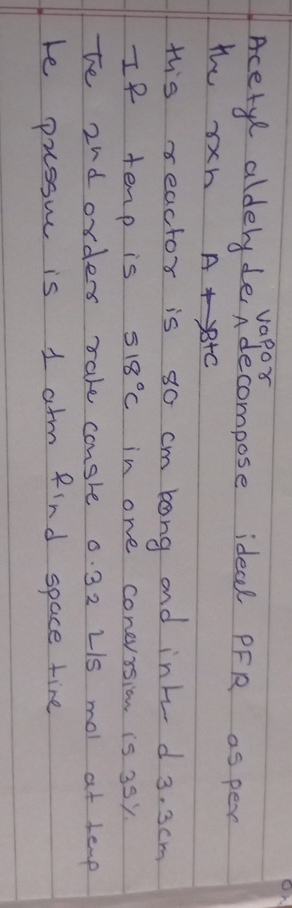 Acetyl aldehyde vapor decompose ideal PFR as per
the rxn A → B+C
this reactor is 80 cm long and inter d 3.3cm
If temp is 518°C in one conversion is 35%
The 2nd order rate conste 0.32 L/s mol at temp
te pressure is 1 atm find space time